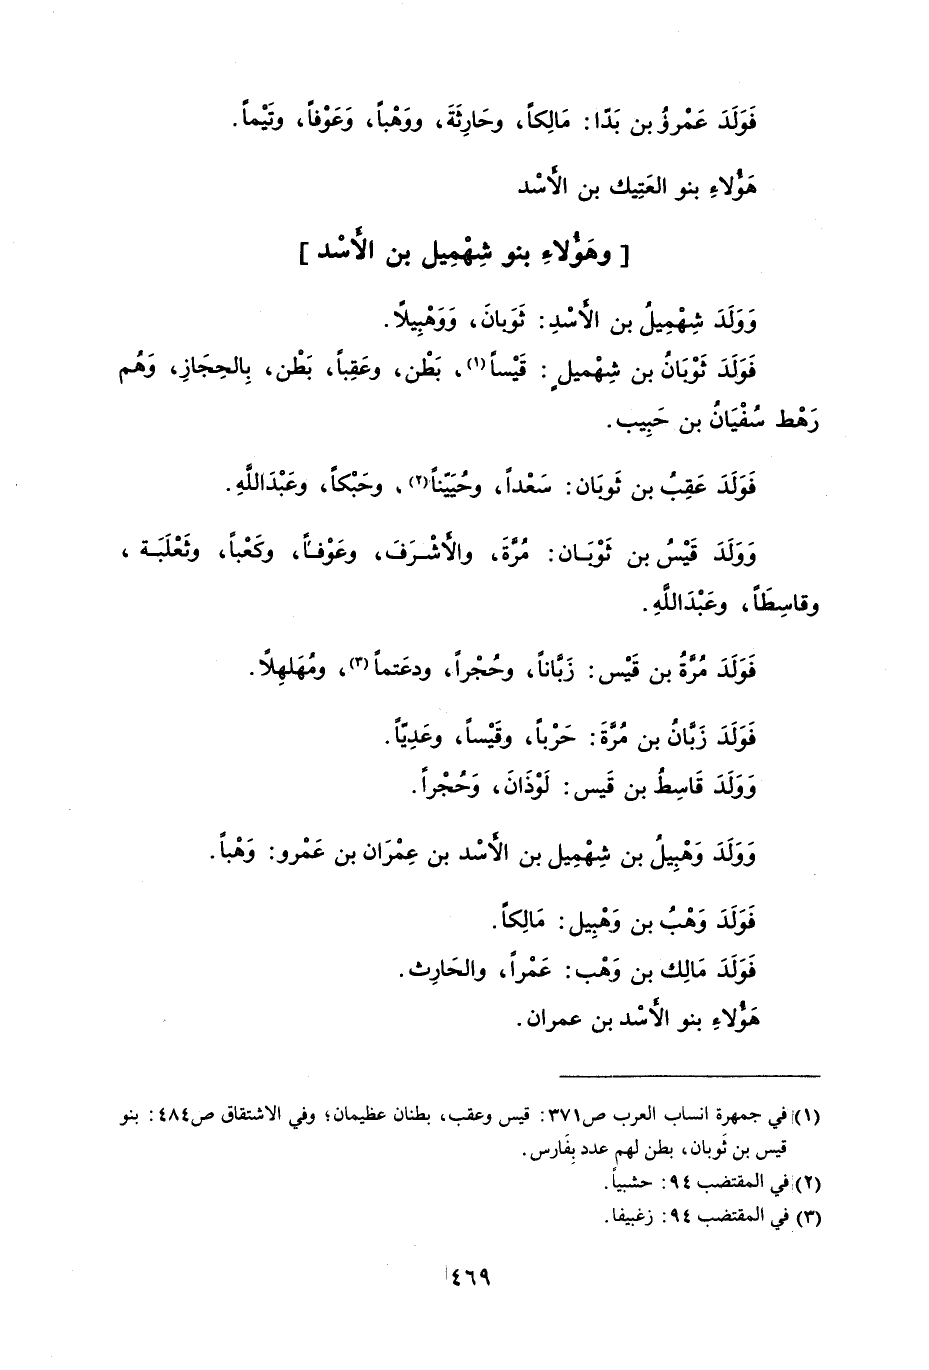 فَوَلَدَ عَمْروُ بن بَدّا: مَالِكاً، وحَارِثَةَ، ووَهْباً، وَعَوْفاً، وتَيْماً.
هَؤُلاءِ بنو العَتِيك بن الأَسْد
[ وهَؤُلاءِ بنو شِهْمِيل بن الأَسْد ]
وَوَلَدَ شِهْمِيلُ بن الأَسْدِ: ثَوبانَ، وَوَهْبِيلًا.
فَوَلَدَ ثَوْبَانُ بن شِهْميلٍ: قَيْساً(١)، بَطْن، وعَقِباً، بَطْن، بِالحِجَازِ، وَهُم
رَهْط سُفْيَانُ بن حَبِيب.
فَوَلَدَ عَقِبُ بن ثَوبَان: سَعْداً، وحُيَيّناً(٢)، وحَبْكاً، وعَبْدَاللَّهِ.
وَوَلَدَ قَيْسُ بن ثَوْبَـان: مُرَّةَ، والأَشْـرَفَ، وعَوْفـاً، وكَعْباً، وثَعْلَبَـة ،
وقاسِطَاً، وعَبْدَاللَّهِ.
فَوَلَدَ مُرَّةُ بن قَيْس: زَبَّاناً، وحُجْراً، ودعَتماً(٣)، ومُهَلهِلًا.
فَوَلَدَ زَبَّانُ بن مُرَّةَ: حَرْباً، وقَيْساً، وعَدِيّاً.
وَوَلَدَ قَاسِطُ بن قَيس: لَوْذَانَ، وَحُجْراً.
وَوَلَدَ وَهْبِيلُ بن شِهْمِيل بن الأَسْد بن عِمْرَان بن عَمْرو: وَهْباً.
فَوَلَدَ وَهْبُ بن وَهْبِيل: مَالِكاً.
فَوَلَدَ مَالِك بن وَهْب: عَمْراً، والحَارِث.
هَؤُلاءِ بنو الأَسْد بن عمران.
(١) في جمهرة انساب العرب ص٣٧١: قيس وعقب، بطنان عظيمان؛ وفي الاشتقاق ص٤٨٤: بنو
قيس بن ثَوبان، بطن لهم عدد بِفَارس.
(٢) في المقتضب ٩٤: حشبياً.
(٣) في المقتضب ٩٤: زغبيفا.
٤٦٩